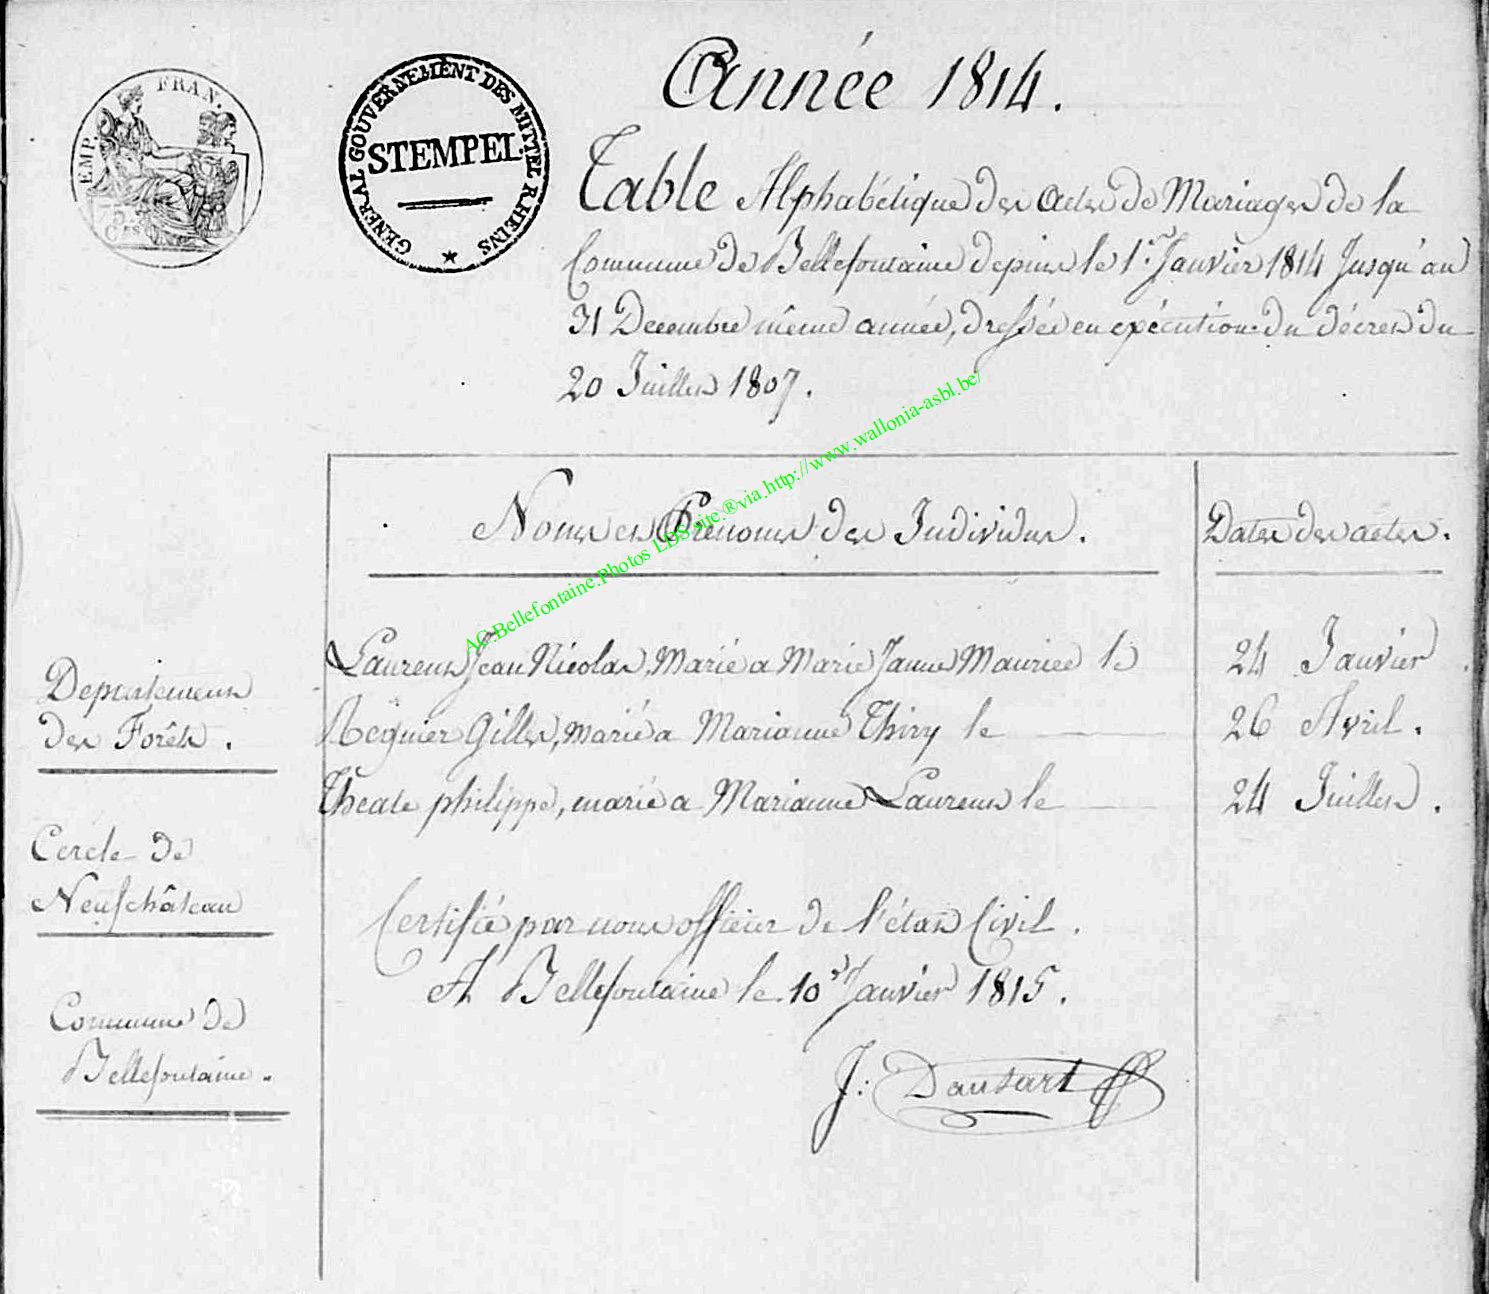 Année 1814.
EMP. FRAN.
75
Ces
GENERAL GOUVERNEMENT DES MITTEL RHEINS
STEMPEL
Table Alphabétique des actes de Mariages de la
Commune de Bellefontaine depuis le 1er Janvier 1814 Jusqu'au
31 Decembre même année, dressée en exécution du décret du
20 Juillet 1807.
Noms et Prénoms des Individus.
Dates des actes.
AC.Bellefontaine.Photos LDS site.®via.http://www.wallonia-asbl.be/
Laurent Jean Nicolas, Marié a Marie Janne Mauricé le 24 Janvier
Departement
des Forêts.
Reguier Gilles, marié a Marianne Thiry le 26 Avril.
Theate philippe, marié a Marianne Laurent le 24 Juillet.
Cercle de
Neufchâteau
Certifié par nous officier de l'état Civil.
A Bellefontaine le 10 Janvier 1815.
Commune de
Bellefontaine.
J: Dausart